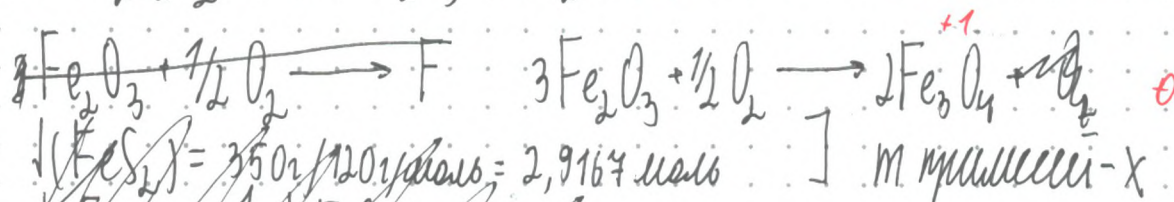 +1
3Fe₂O₃ + 1/2 O₂ → F 3Fe₂O₃ + 1/2 O₂ → 2Fe₃O₄ +
ν(FeS₂) = 350г/120г/моль = 2,9167 моль ] m примесей - x